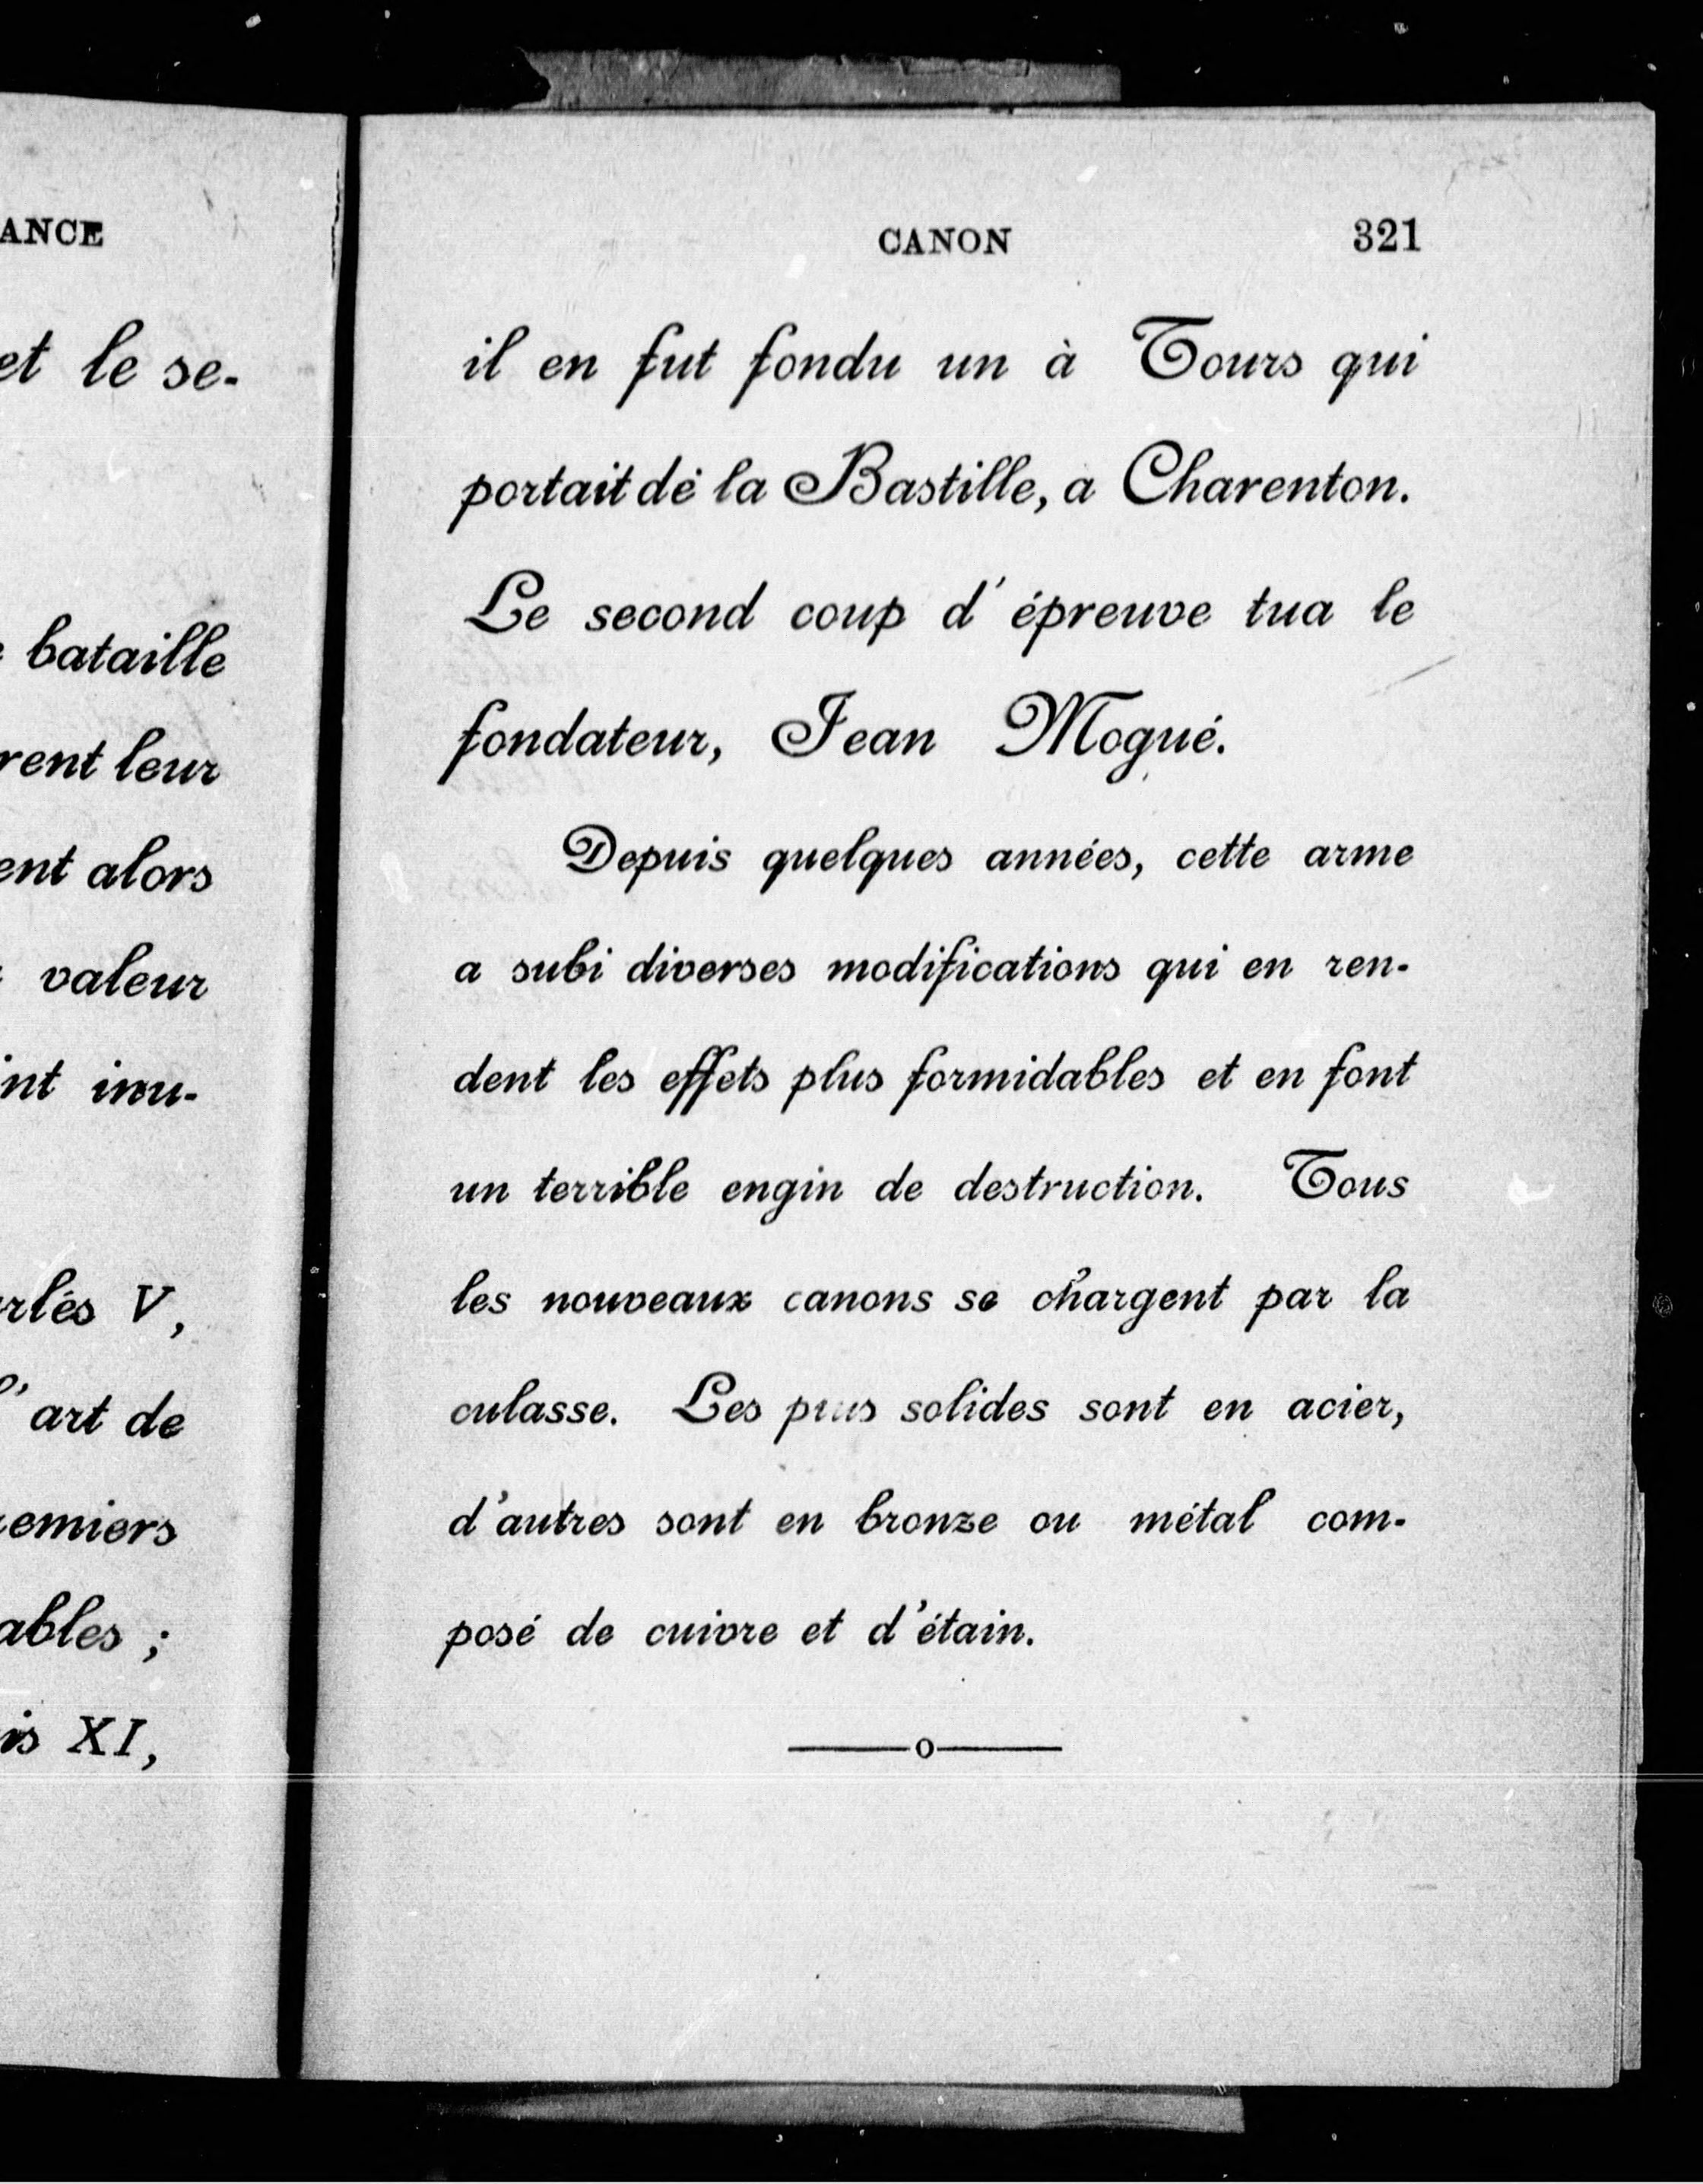 ANCE
et le se-
bataille
rent leur
ent alors
valeur
int inu-
rlés V,
l'art de
emiers
ables ;
is XI,
CANON 321
il en fut fondu un à Tours qui
portait dé la Bastille, a Charenton.
Le second coup d'épreuve tua le
fondateur, Jean Mogué.
Depuis quelques années, cette arme
a subi diverses modifications qui en ren-
dent les effets plus formidables et en font
un terrible engin de destruction. Tous
les nouveaux canons se chargent par la
culasse. Les plus solides sont en acier,
d'autres sont en bronze ou métal com-
posé de cuivre et d'étain.